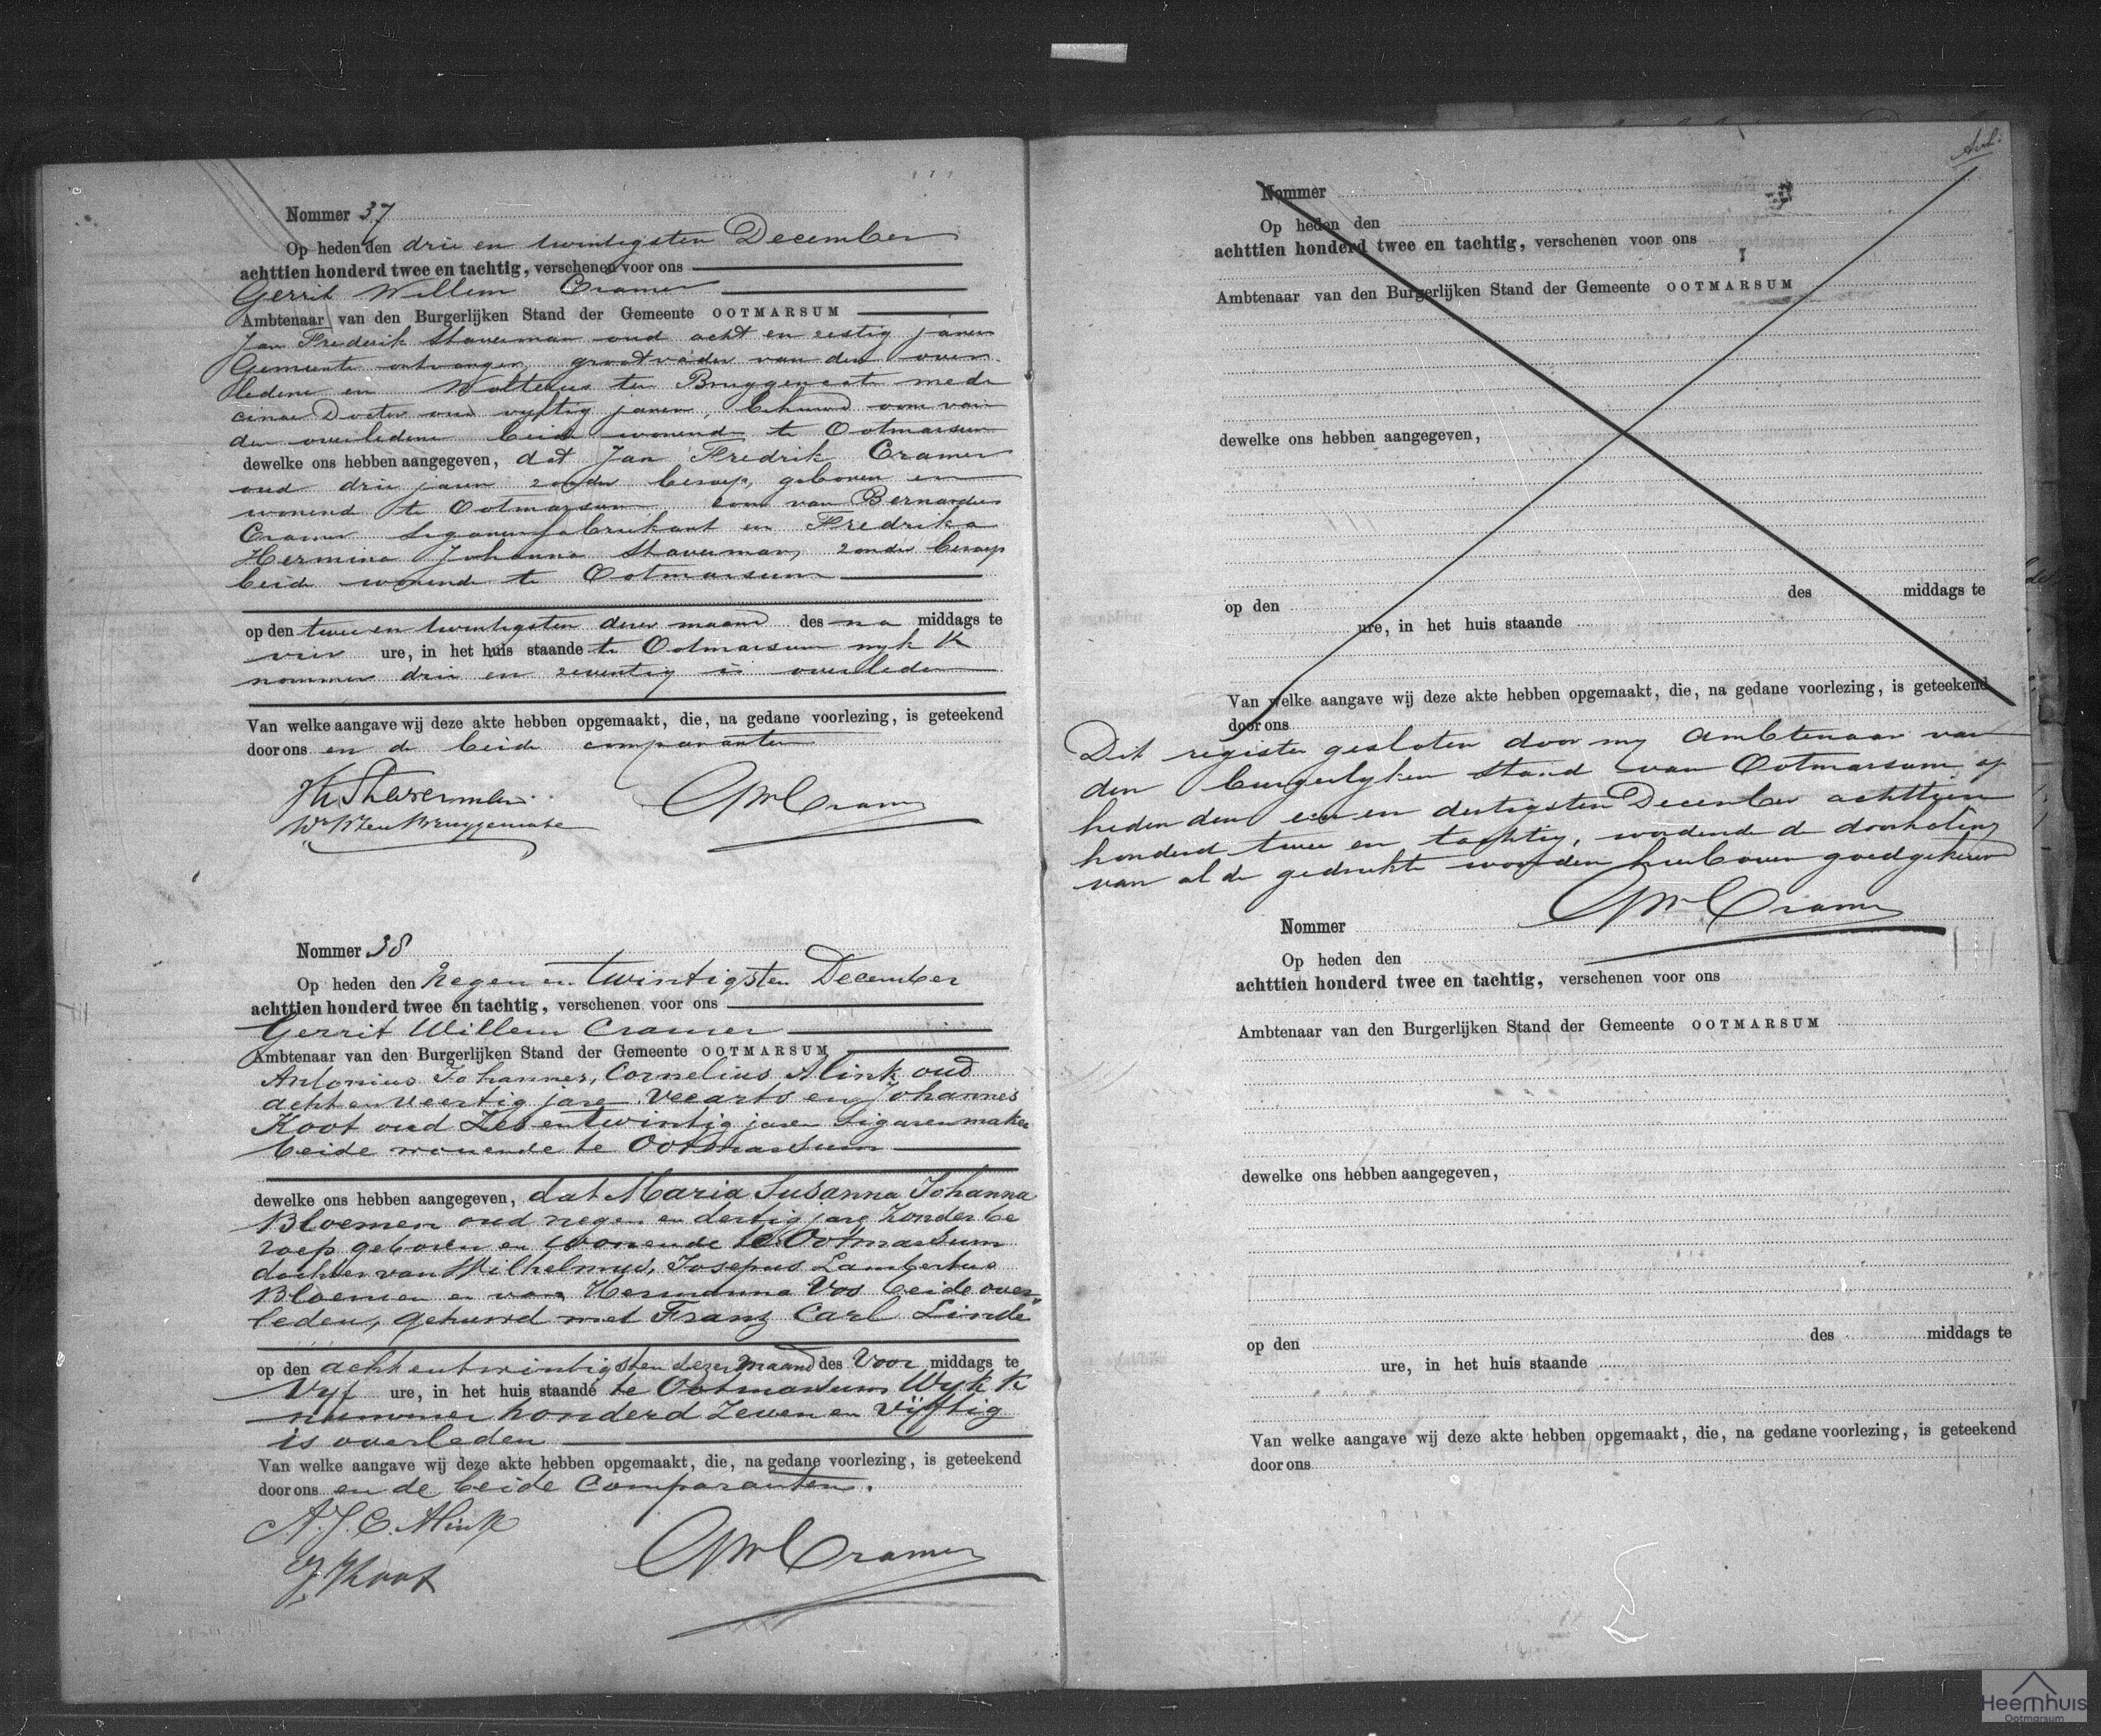 Nommer 37
Op heden den drie en twintigsten December
achttien honderd twee en tachtig, verschenen voor ons
Gerrit Willem Cramer
Ambtenaar van den Burgerlijken Stand der Gemeente OOTMARSUM
Jan Frederik Staverman oud acht en zestig jaren
Gemeente ontvanger, grootvader van den over
ledene en Wolterus ten Bruggencate medi
cinae Doctor oud vyftig jaren, behuwd oom van
den overledene beide wonende te Ootmarsum
dewelke ons hebben aangegeven, dat Jan Fredrik Cramer
oud drie jaren zonder beroep, geboren en
wonend te Ootmarsum zoon van Bernardus
Cramer sigarenfabrikant en Fredrika
Hermina Johanna Staverman, zonder beroep
beide wonende te Ootmarsum
op den twee en twintigsten dezer maand des na middags te
vier ure, in het huis staande te Ootmarsum wyk K
nommer drie en zeventig is overleden
Van welke aangave wij deze akte hebben opgemaakt, die, na gedane voorlezing, is geteekend
door ons en de beide comparanten
Staverman
W ten Bruggencate
GW Cramer
Nommer 38
Op heden den negen en twintigsten December
achttien honderd twee en tachtig, verschenen voor ons
Gerrit Willem Cramer
Ambtenaar van den Burgerlijken Stand der Gemeente OOTMARSUM
Antonius Johannes, Cornelius Alink oud
acht en veertig jare Veearts en Johannes
Koot oud Zes en twintig jaren Sigarenmaker
beide wonende te Ootmarsum
dewelke ons hebben aangegeven, dat Maria Susanna Johanna
Bloemen oud negen en dertig jare Zonder be
roep geboren en wonende te Ootmarsum
dochter van Wilhelmus, Josepus Lambertus
Bloemen en van Hermanna Vos beide over
leden, gehuwd met Franz Carl Linde
op den acht en twintigsten dezer maand des Voor middags te
Vyf ure, in het huis staande te Ootmarsum Wyk K
nummer honderd Zeven en Vijftig
is overleden
Van welke aangave wij deze akte hebben opgemaakt, die, na gedane voorlezing, is geteekend
door ons en de beide Comparanten.
A.J.C. Alink
J Koot
GW Cramer
Nommer
Op heden den
achttien honderd twee en tachtig, verschenen voor ons
Ambtenaar van den Burgerlijken Stand der Gemeente OOTMARSUM
dewelke ons hebben aangegeven,
op den des middags te
ure, in het huis staande
Van welke aangave wij deze akte hebben opgemaakt, die, na gedane voorlezing, is geteekend
door ons
Dit register gesloten door my Ambtenaar van
den burgerlyken stand van Ootmarsum op
heden den een en dertigsten December achttien
honderd twee en tachtig, wordende de doorhaling
van al de gedrukte woorden hierboven goedgekeurd
GW Cramer
Nommer
Op heden den
achttien honderd twee en tachtig, verschenen voor ons
Ambtenaar van den Burgerlijken Stand der Gemeente OOTMARSUM
dewelke ons hebben aangegeven,
op den des middags te
ure, in het huis staande
Van welke aangave wij deze akte hebben opgemaakt, die, na gedane voorlezing, is geteekend
door ons
Heemhuis
Ootmarsum